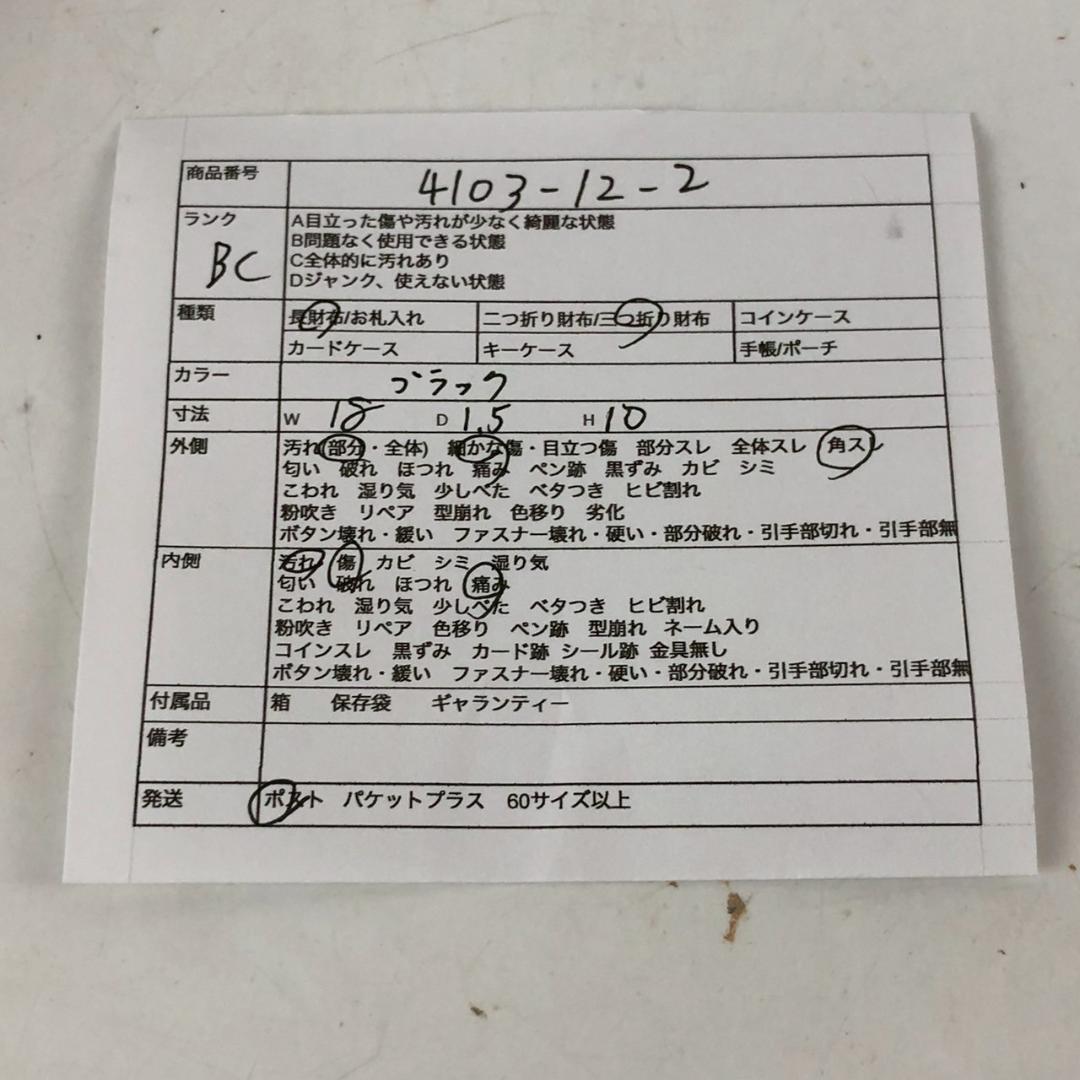 商品番号 4103-12-2
ランク BC
A目立った傷や汚れが少なく綺麗な状態
B問題なく使用できる状態
C全体的に汚れあり
Dジャンク、使えない状態
種類 長財布/お札入れ 二つ折り財布/三つ折り財布 コインケース
カードケース キーケース 手帳/ポーチ
カラー ブラック
寸法 W 18 D 1.5 H 10
外側 汚れ(部分・全体) 細かな傷・目立つ傷 部分スレ 全体スレ 角スレ
匂い 破れ ほつれ 痛み ペン跡 黒ずみ カビ シミ
こわれ 湿り気 少しべた ベタつき ヒビ割れ
粉吹き リペア 型崩れ 色移り 劣化
ボタン壊れ・緩い ファスナー壊れ・硬い・部分破れ・引手部切れ・引手部無
内側 汚れ 傷 カビ シミ 湿り気
匂い 破れ ほつれ 痛み
こわれ 湿り気 少しべた ベタつき ヒビ割れ
粉吹き リペア 色移り ペン跡 型崩れ ネーム入り
コインスレ 黒ずみ カード跡 シール跡 金具無し
ボタン壊れ・緩い ファスナー壊れ・硬い・部分破れ・引手部切れ・引手部無
付属品 箱 保存袋 ギャランティー
備考
発送 ポスト パケットプラス 60サイズ以上